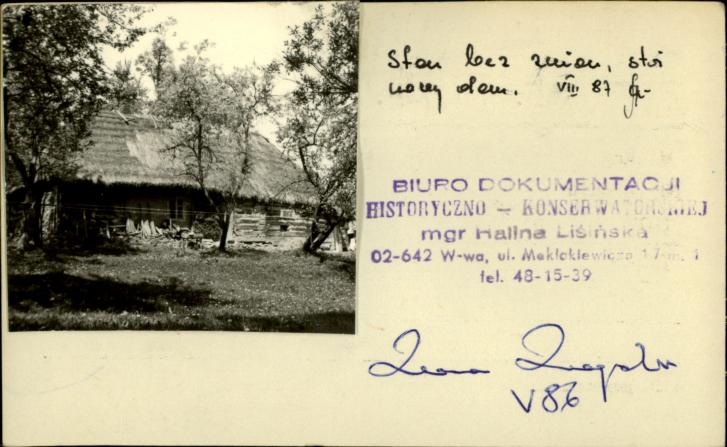 Stan bez zmian, stoi
nowy dom. VIII 87
BIURO DOKUMENTACJI
HISTORYCZNO – KONSERWATORSKIEJ
mgr Halina Lisińska
02-642 W-wa, ul. Mekłokiewicza 17 m. 1
tel. 48-15-39
V 86